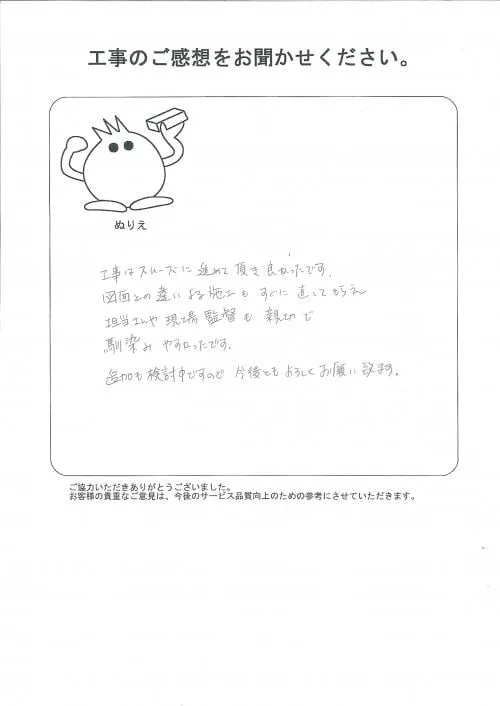 工事のご感想をお聞かせください。
ぬりえ
工事はスムーズに進めて頂き良かったです。
図面との違いよる施工もすぐに直してもらえ
担当さんや現場監督も親切で
馴染みやすかったです。
追加も検討中ですので今後ともよろしくお願い致ます。
ご協力いただきありがとうございました。
お客様の貴重なご意見は、今後のサービス品質向上のための参考にさせていただきます。